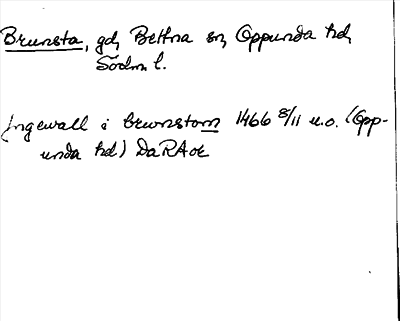 Brunsta, gd, Bettna sn, Oppunda hd,
Södm l.
Ingewall i brwnstom 1466 8/11 u.o. (Opp-
unda hd) DaRAoe